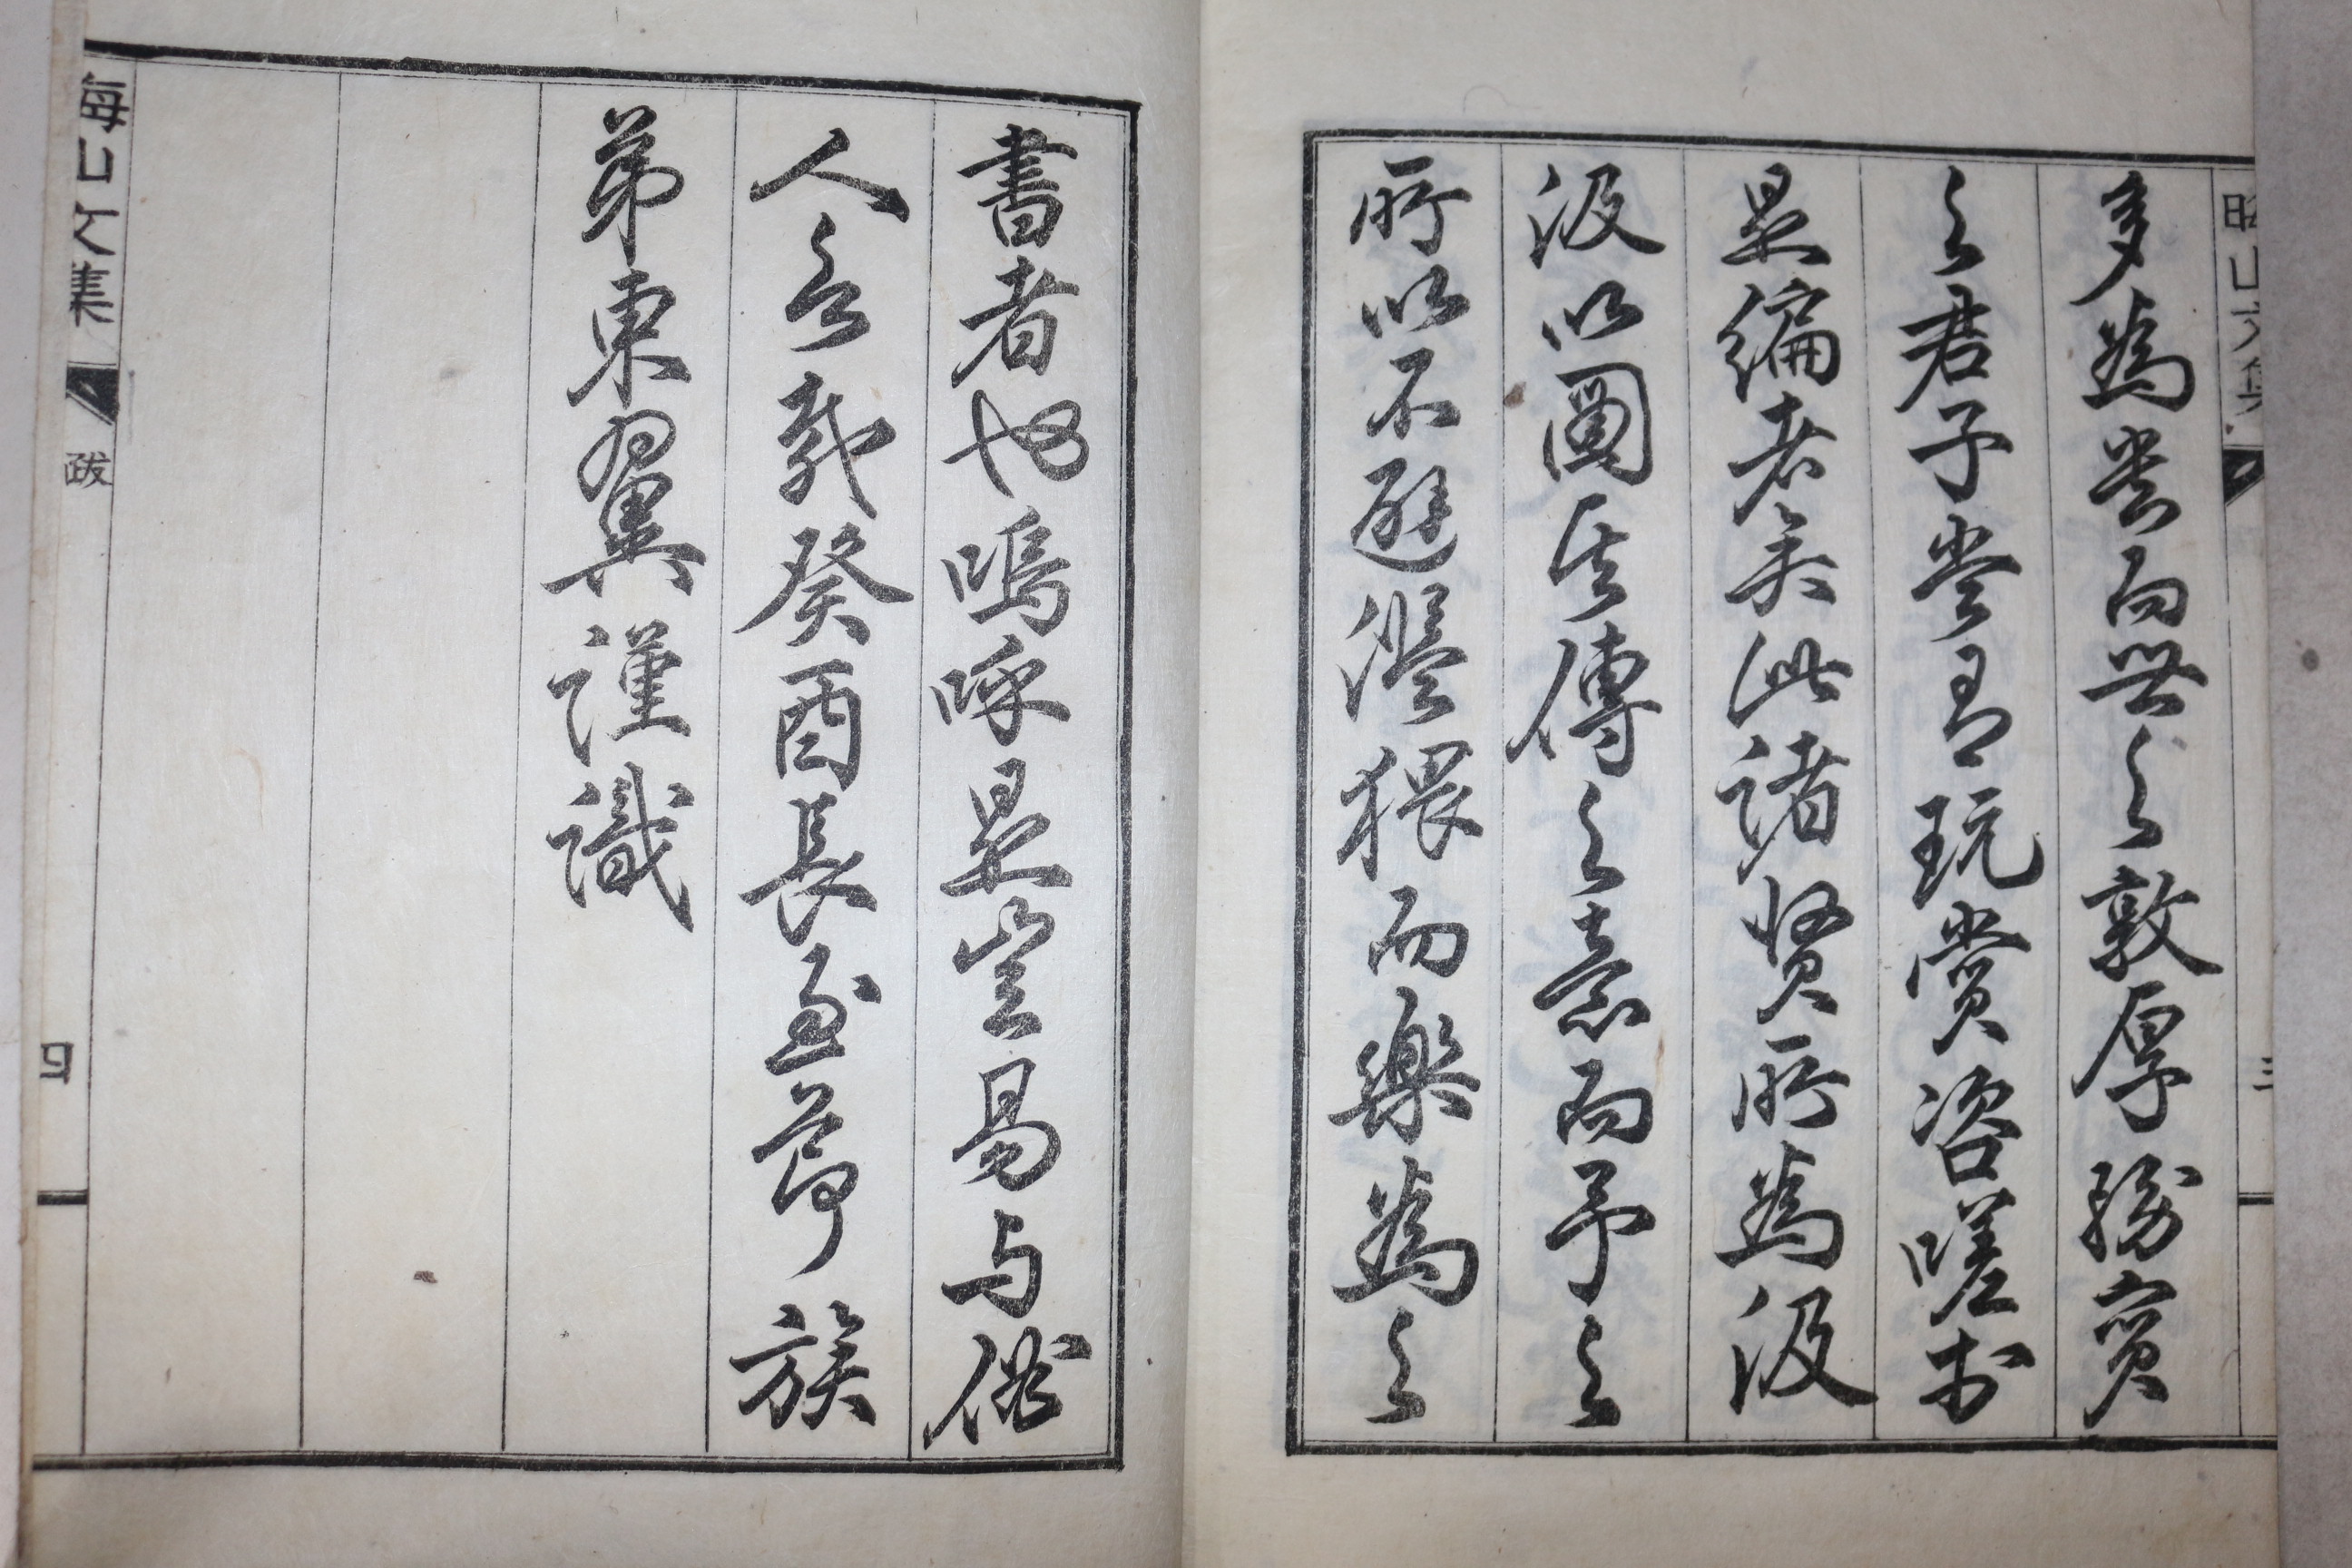 晦山文集
三
多為貴而世之敦厚務實
之君子當有玩賞咨嗟於
是編者矣此諸賢所為汲
汲以圖其傳之意而予之
所以不避濫猥而樂為之
書者也嗚呼是豈易与俗
人言哉癸酉長至節族
弟東翼謹識
晦山文集
跋
四